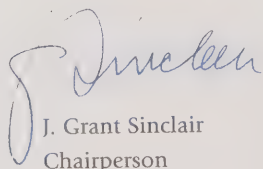 J. Grant Sinclair
Chairperson